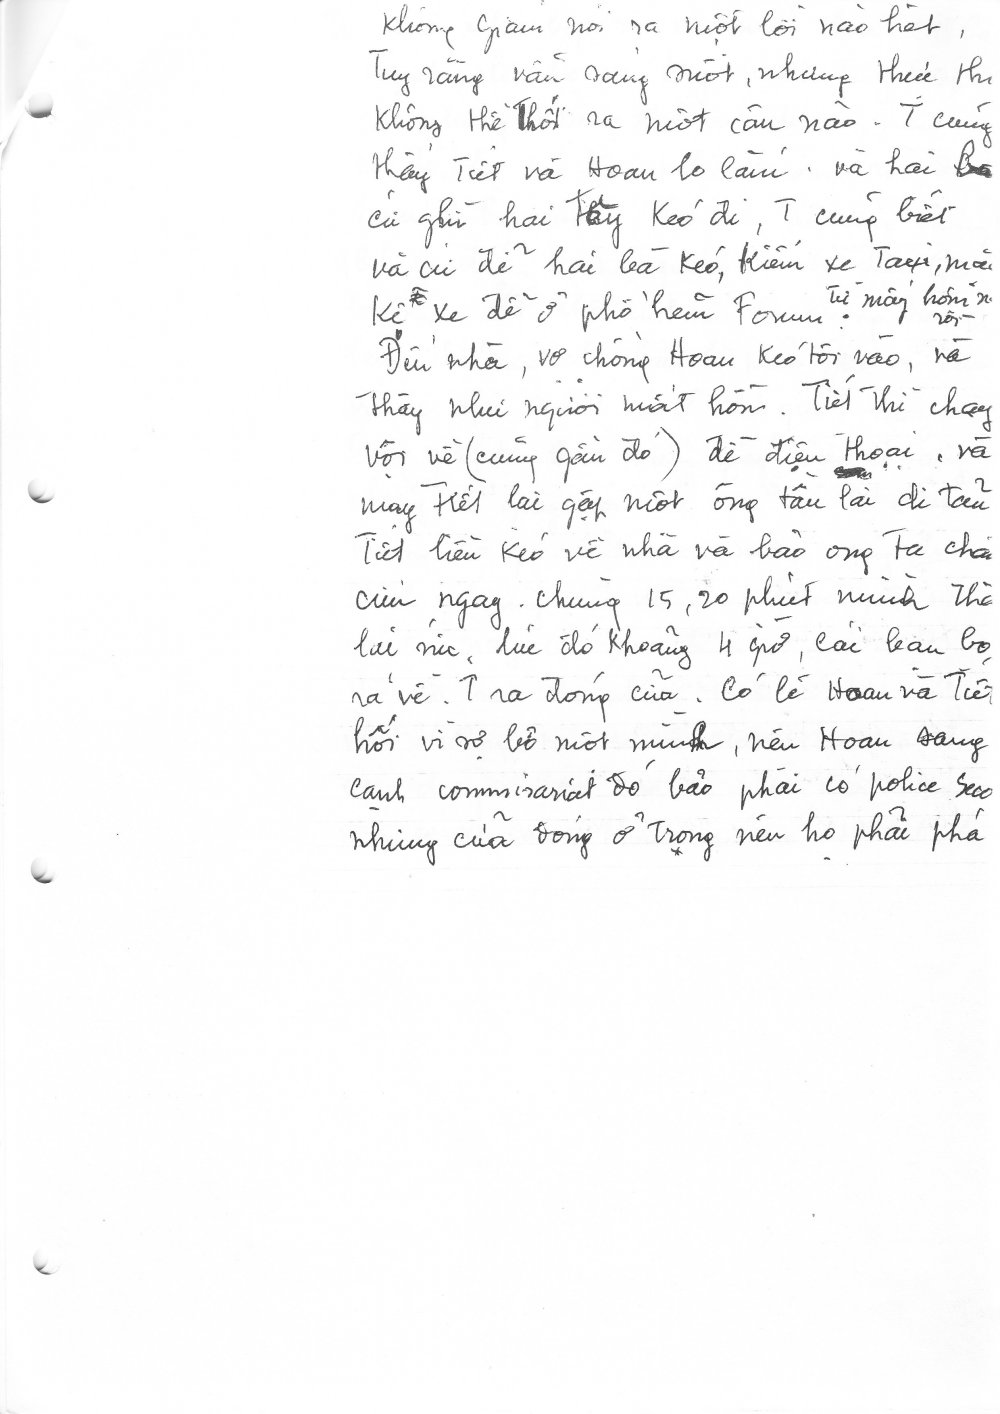 không giám nói ra một lời nào hết,
Tuy rằng vẫn sáng suốt, nhưng
không thể thốt ra một câu nào. T cũng
thấy Tiết và Hoan lo lắm. và hai
cứ ghì hai tay kéo đi, T cũng biết
và cứ để hai bà kéo, kiếm xe Taxi,
kệ xe để ở phố hẻm Forum. từ mấy hôm
rồi
Đến nhà, vợ chồng Hoan kéo tôi vào, và
thấy như người mất hồn. Tiết thì chạy
vội về (cũng gần đó) để điện thoại. và
may Tiết lại gặp một ông
Tiết liền kéo về nhà và bảo ong ta
cứu ngay. chừng 15, 20 phút mình
lai lúc đó khoảng 4 giờ, các bạn
ra về. T ra đóng cửa. Có lẽ Hoan và Tiết
hối vì sợ bỏ một mình, nên Hoan sang
cạnh commisariat đó bảo phải có police
nhưng cửa đóng ở trong nên họ phải phá